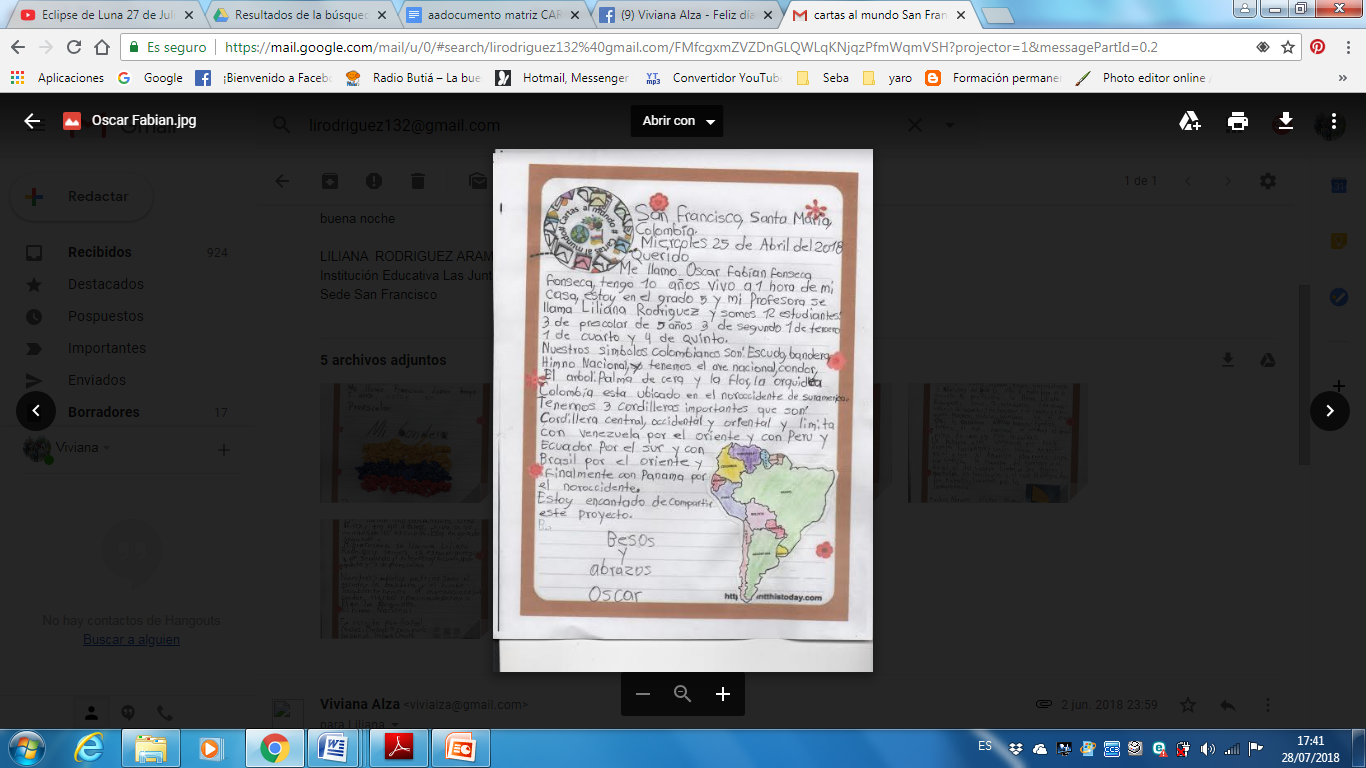 Eclipse de Luna 27 de Jul
Resultados de la búsqued
aadocumento matriz CAR
(9) Viviana Alza - Feliz día
cartas al mundo San Fran
Es seguro
https://mail.google.com/mail/u/0/#search/lirodriguez132%40gmail.com/FMfcgxmZVZDnGLQWLqKNjqzPfmWqmVSH?projector=1&messagePartId=0.2
Aplicaciones
Google
¡Bienvenido a Faceb
Radio Butiá – La bue
Hotmail, Messenger
Convertidor YouTub
Seba
yaro
Formación permanen
Photo editor online
Oscar Fabian.jpg
lirodriguez132@gmail.com
Abrir con
Redactar
1 de 1
Recibidos 924
Destacados
Pospuestos
Importantes
Enviados
Borradores 17
Viviana
No hay contactos de Hangouts
Buscar a alguien
buena noche
LILIANA RODRIGUEZ ARAM
Institución Educativa Las Junt
Sede San Francisco
5 archivos adjuntos
San Francisco, Santa María,
Colombia.
Miercoles 25 de Abril del 2018
Querido
Me llamo Oscar Fabian Fonseca
Fonseca, tengo 10 años vivo a 1 hora de mi
casa, estoy en el grado 5 y mi Profesora se
llama Liliana Rodriguez y somos 12 estudiantes:
3 de prescolar de 5 años 3 de segundo 1 de tercero
1 de cuarto y 4 de quinto.
Nuestros simbolos colombianos son: Escudo, bandera,
Himno Nacional, y tenemos el ave nacional, condor,
El arbol: Palma de cera y la flor, la orquidea
Colombia esta ubicado en el noroccidente de suramerica.
Tenemos 3 cordilleras importantes que son:
Cordillera central, occidental y oriental y limita
con venezuela por el oriente y con Peru y
Ecuador Por el sur y con
Brasil por el oriente y
Finalmente con Panama por
el noroccidente.
Estoy encantado de compartir
este proyecto.
Besos
y
abrazos
Oscar
ntthistoday.com
Viviana Alza <vivialza@gmail.com>
2 jun. 2018 23:59
para Liliana
ES
17:41
28/07/2018